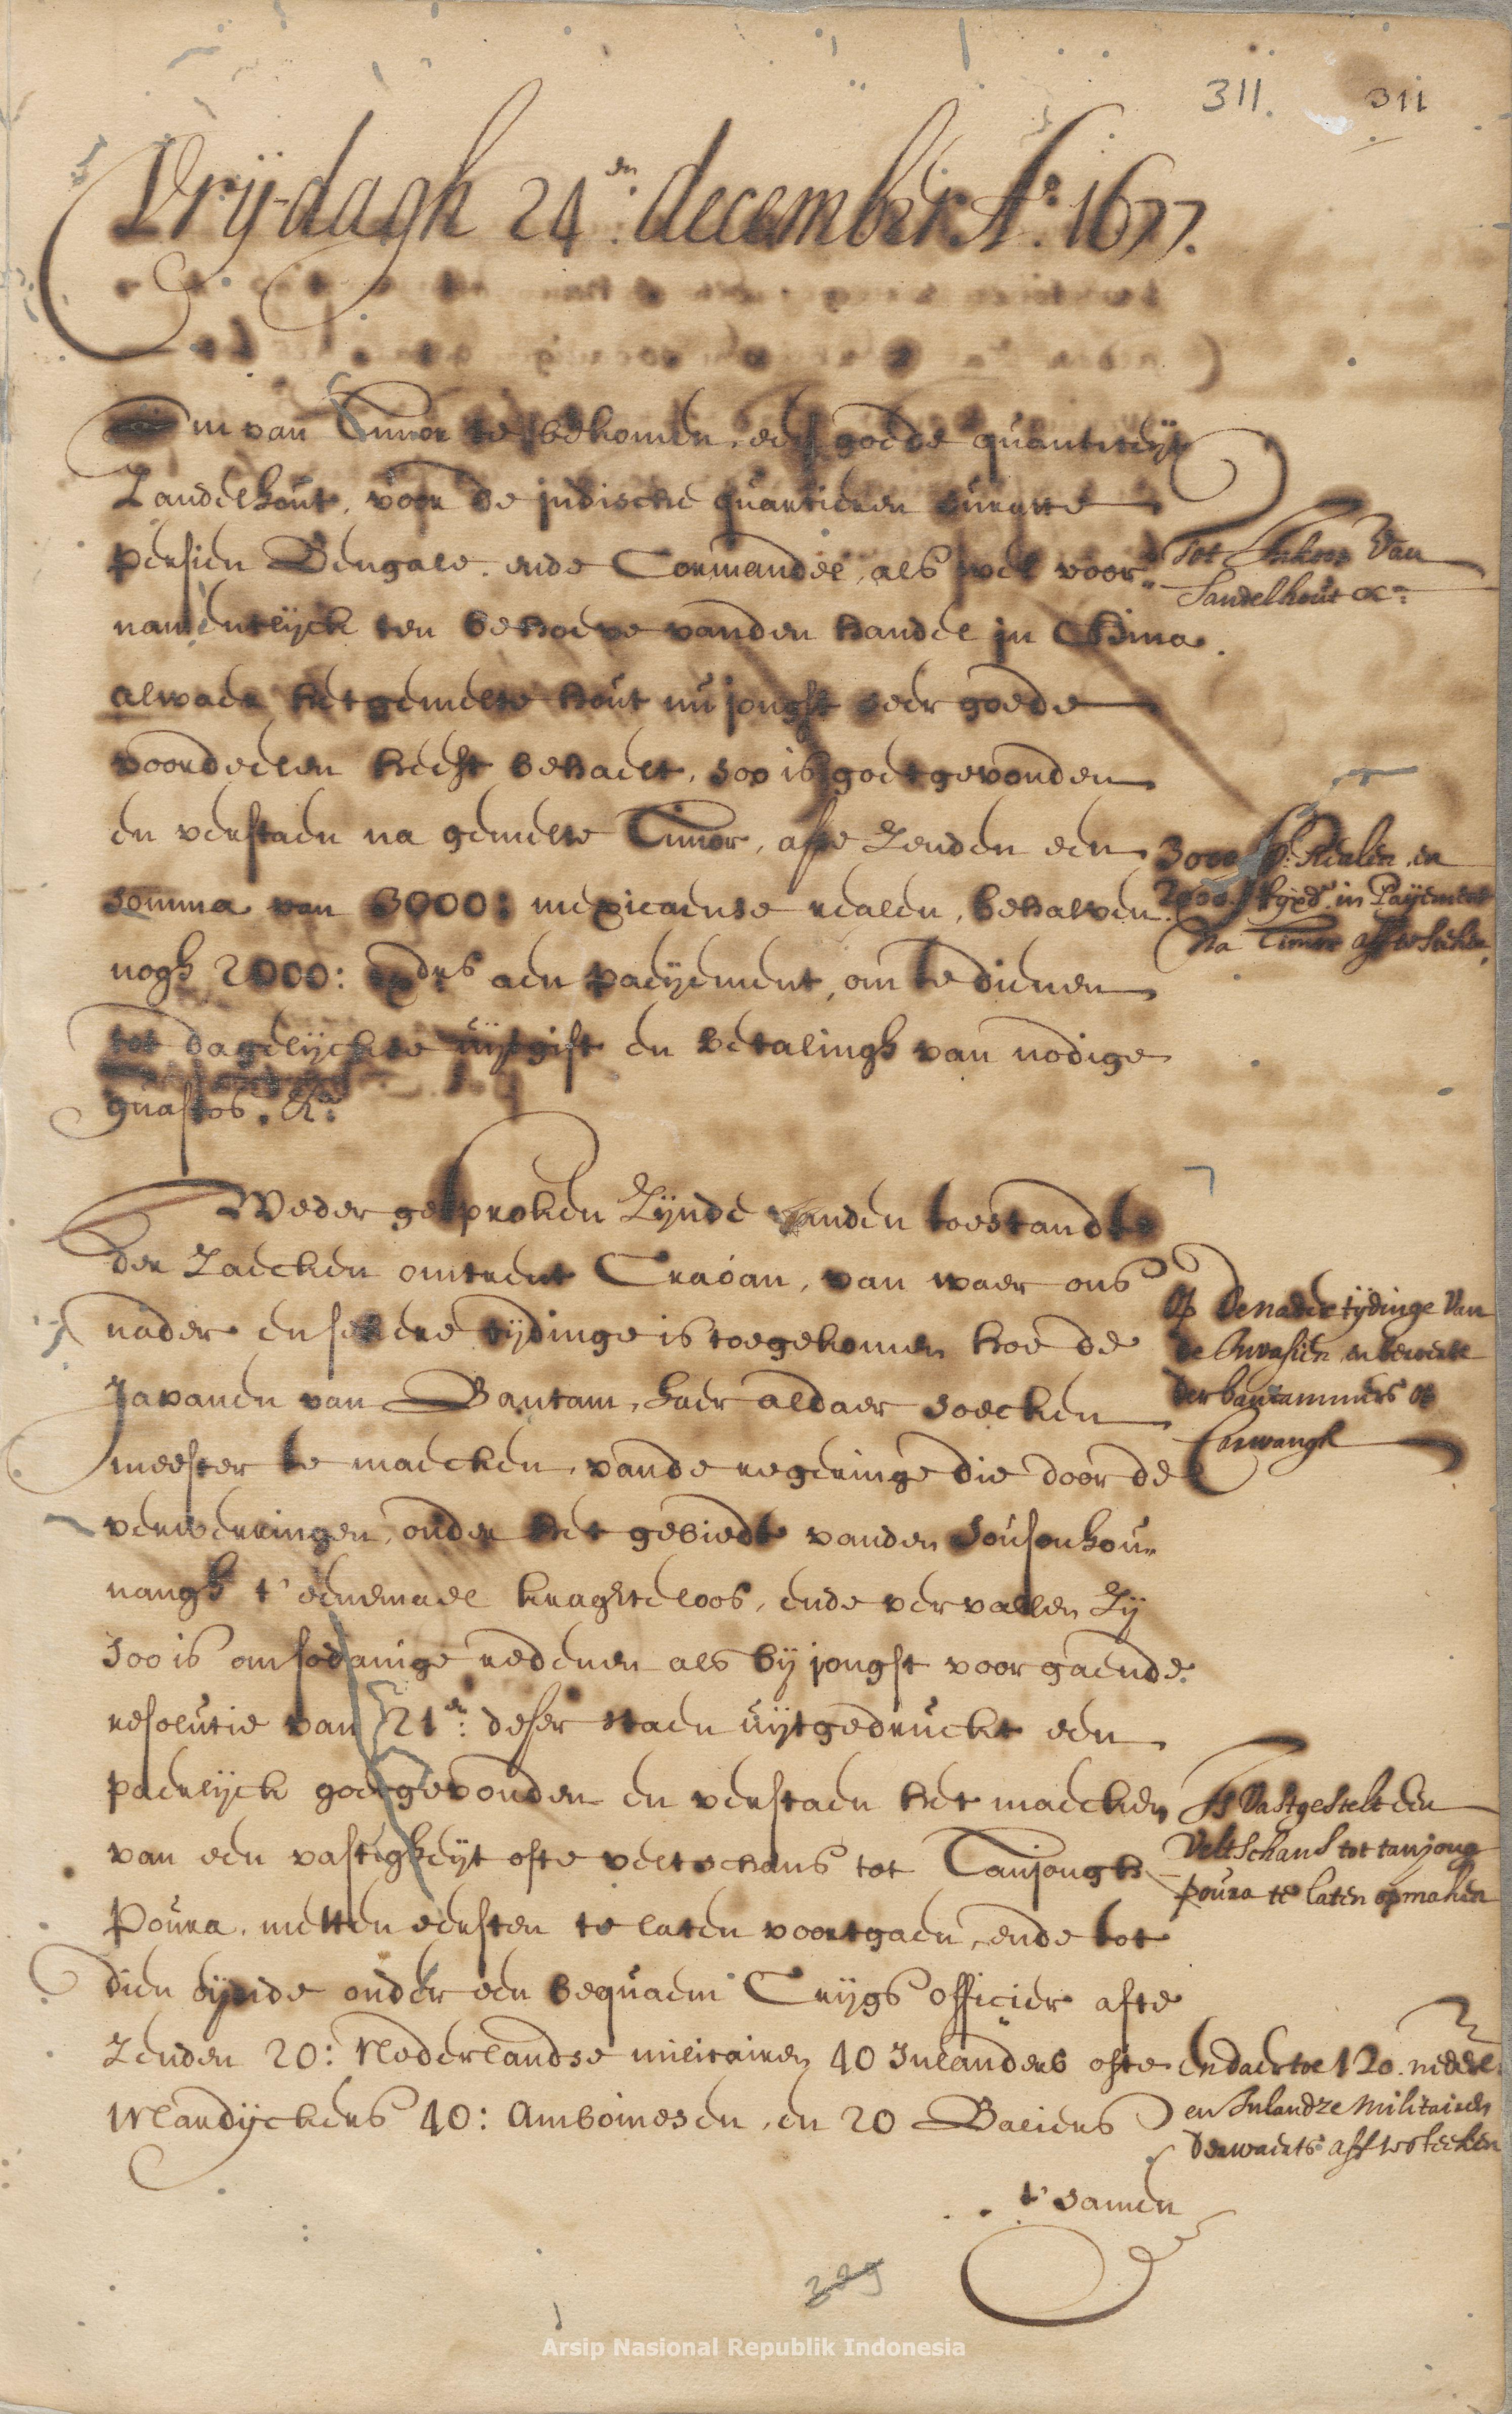 311. 311
Vrÿdagh 24:en december A:o 1677.
Om van Timor te bekomen, een goede quantiteÿt
Zandelhout, voor de indische quartieren suratte
persien Bengale, ende Cormandel, als wel voor„
namentlÿck ten behoeve vanden handel in China.
alwaer het gemelte hout nu jongst seer goede
voordeelen heeft behaelt, soo is goetgevonden
en verstaen na gemelte Timor, aff te Zenden een
somma van 3000: mexicaense realen, behalven
nogh 2000: rds aen paeyement, om te dienen
tot dagelÿckse uÿtgift en betalingh van nodige
guastos. &a:
Tot Inkoop Van
Sandelhout &a:
3000 sp: Realen en
2000 rijxds in Paijement
Na Timor aff te steken
Weder gesproken Zÿnde vanden toestandt
der Zaecken omtrent Craoan, van waer ons
nader en seekere tÿdinge is toegekomen hoe de
Javanen van Bantam, haer aldaer soecken
meester te maecken, vande regeringe die door de
verwerringen, onder het gebiedt vanden Sousouhou„
nangh t' eenemael kraghteloos, ende vervallen Zÿ
Soo is om sodanige redenen als bÿ jongst voorgaende
resolutie van 21:en deser staen uÿtgedruckt een
paerlÿck goetgevonden en verstaen het maecken
van een vastigheÿt ofte veltschans tot Tanjongh
Poura, metten eersten te laten voortgaen, ende tot
dien eÿnde onder een bequaem Crÿgs officier afte
Zenden 20: Nederlandse militairen 40 Inlanders ofte
Mardÿckers 40: Amboinesen, en 20 Baliers
t' samen
Op de nader tÿdinge Van
de Invasien en
der bantammers op
Carwangh
Is Vastgestelt een
Veltschans tot tanjong
poura te laten opmaken
en daer toe 120. nederl:
en Inlandze Militairen
derwaerts aff te steeken
329
Arsip Nasional Republik Indonesia